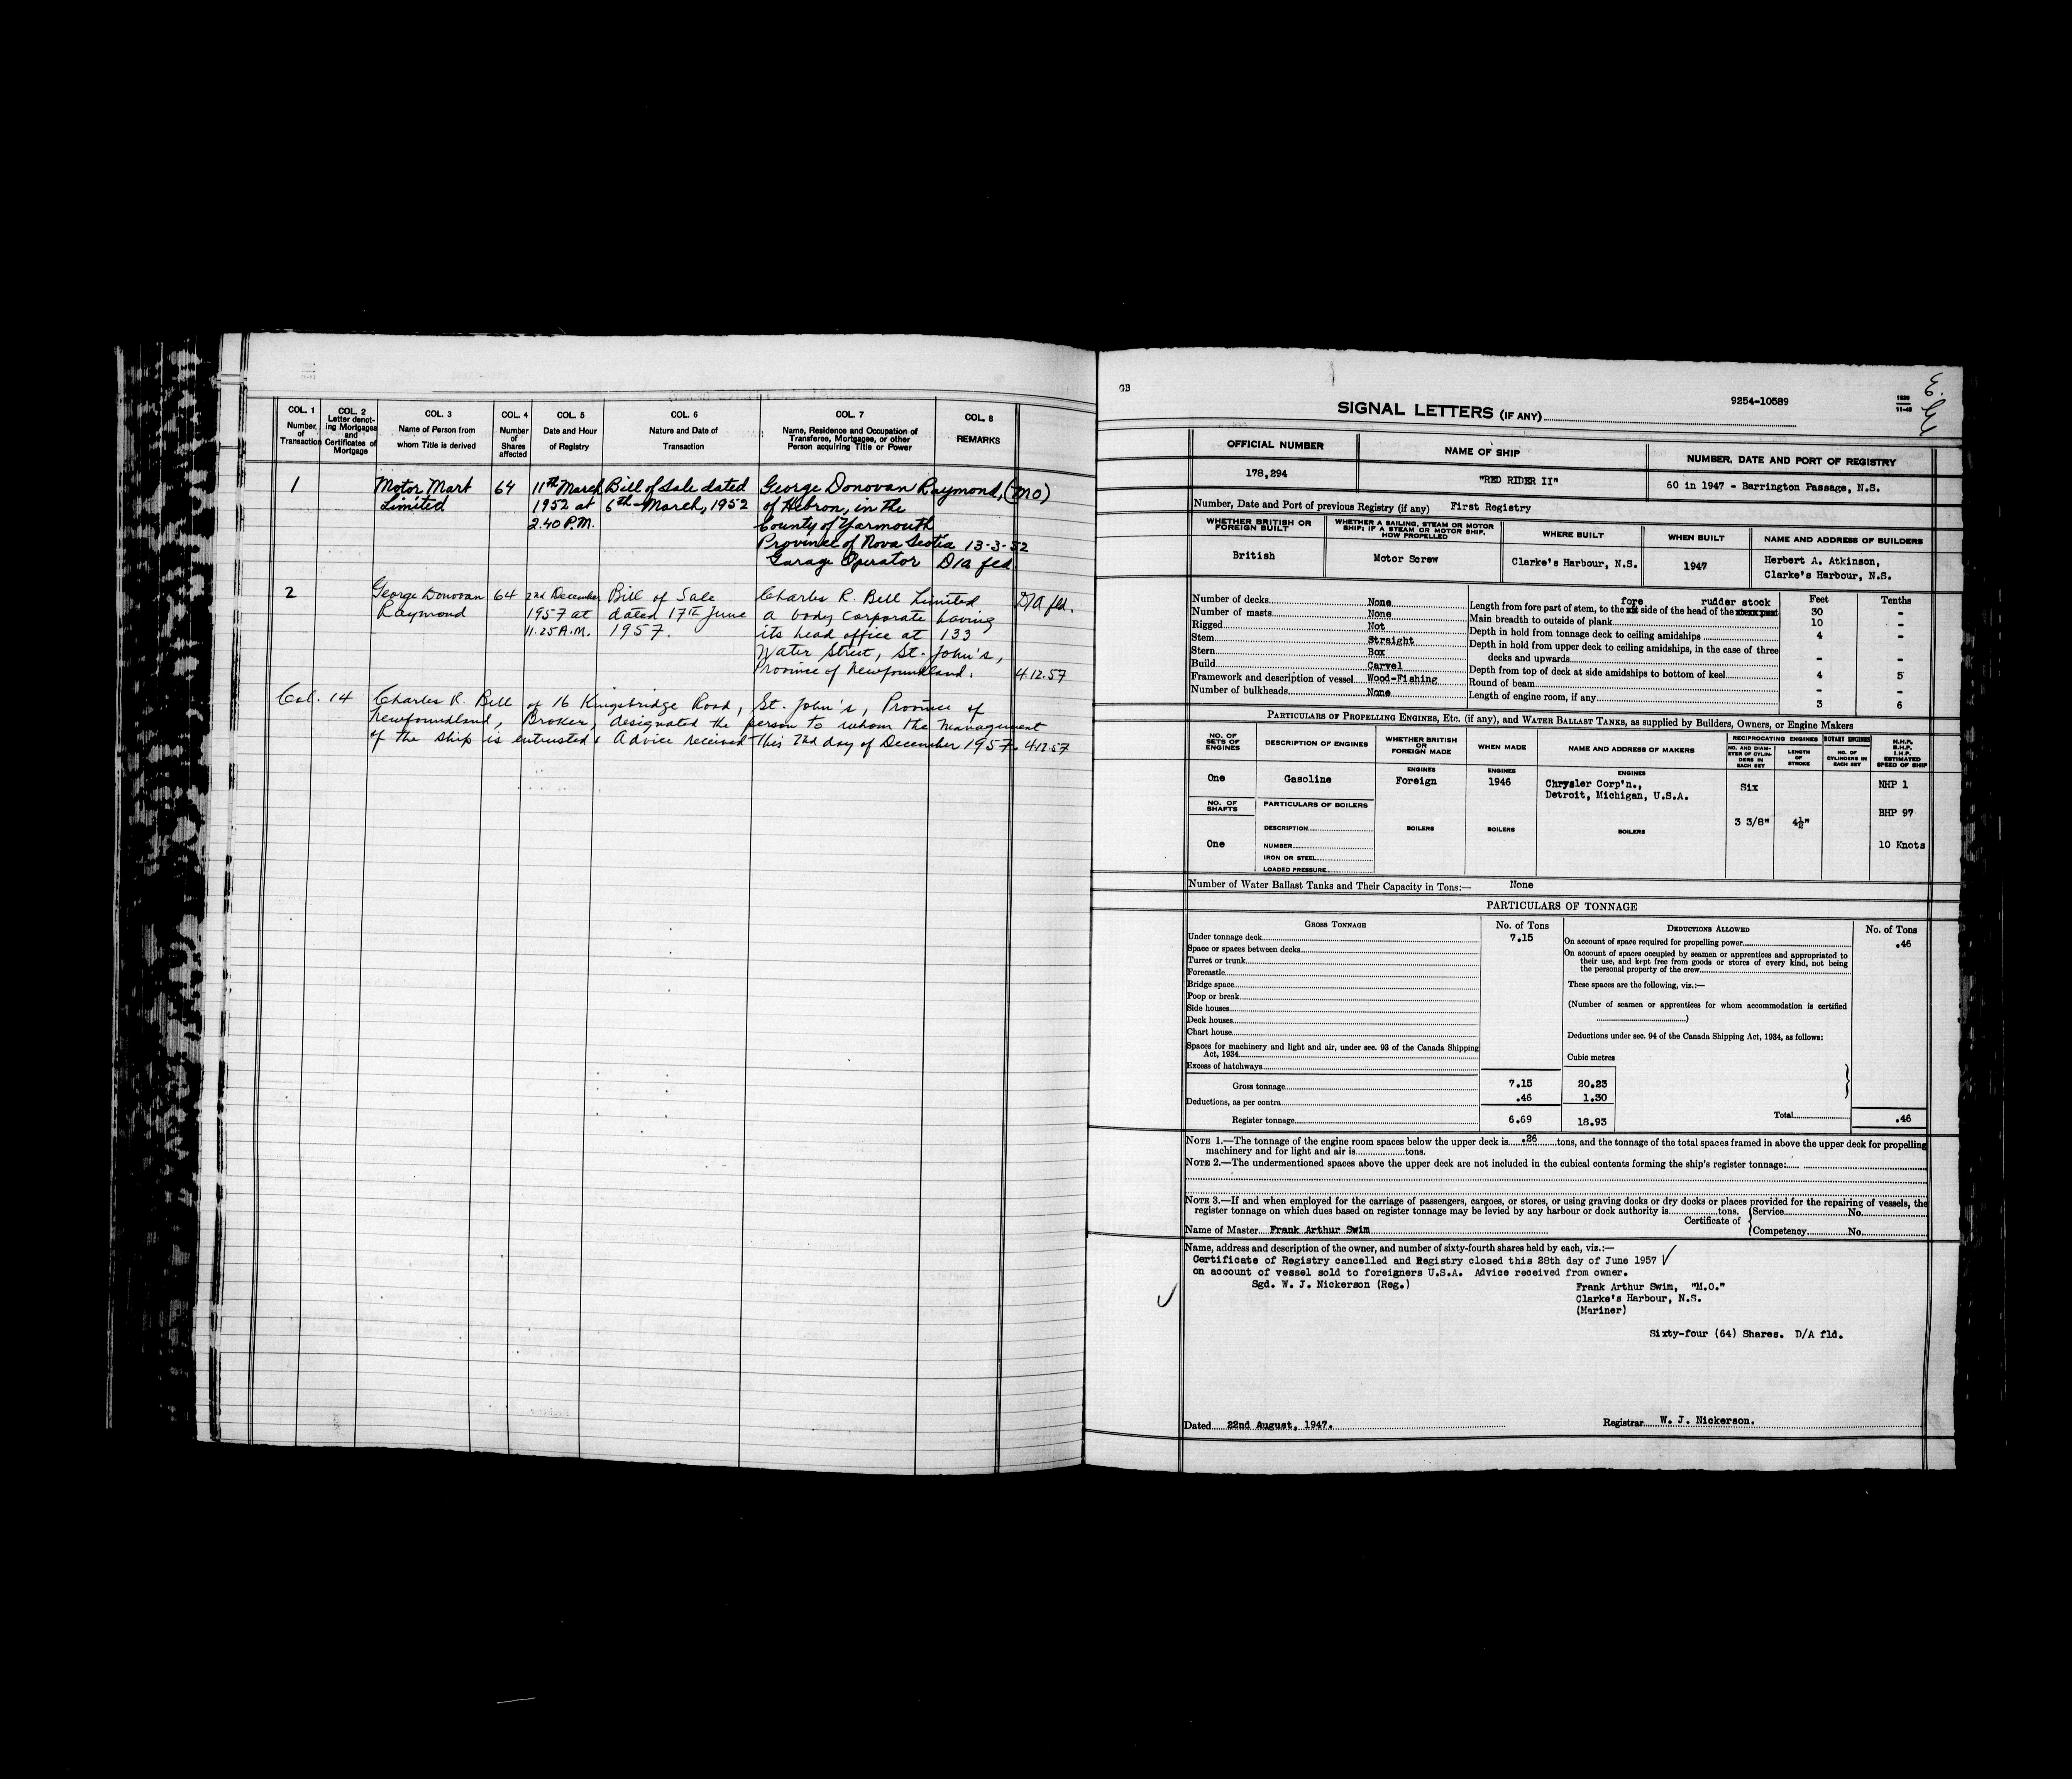 COL. 1 Number of Transaction
COL. 2 Letter denoting Mortgages and Certificates of Mortgage
COL. 3 Name of Person from whom Title is derived
COL. 4 Number of Shares affected
COL. 5 Date and Hour of Registry
COL. 6 Nature and Date of Transaction
COL. 7 Name, Residence and Occupation of Transferee, Mortgagee, or other Person acquiring Title or Power
COL. 8 REMARKS
1 Motor Mart 64 11th March Bill of Sale dated George Donovan Raymond, (MO)
Limited 1952 at 6th March, 1952 of Hebron, in the
2.40 P.M. County of Yarmouth
Province of Nova Scotia 13-3-52
Garage Operator D/a fld.
2 George Donovan 64 2nd December Bill of Sale Charles R. Bell Limited D/A fld.
Raymond 1957 at dated 17th June a body corporate having
11.25 A.M. 1957. its head office at 133
Water Street, St. John's,
Province of Newfoundland. 4.12.57
Col. 14 Charles R. Bell of 16 Kingsbridge Road, St. John's, Province of
Newfoundland, Broker, designated the person to whom the management
of the ship is entrusted. Advice received this 2nd day of December 1957. 4.12.57
GB
SIGNAL LETTERS (IF ANY)
9254-10589
OFFICIAL NUMBER NAME OF SHIP NUMBER, DATE AND PORT OF REGISTRY
178,294 "RED RIDER II" 60 in 1947 - Barrington Passage, N.S.
Number, Date and Port of previous Registry (if any) First Registry
WHETHER BRITISH OR FOREIGN BUILT
WHETHER A SAILING, STEAM OR MOTOR SHIP; IF A STEAM OR MOTOR SHIP, HOW PROPELLED
WHERE BUILT WHEN BUILT NAME AND ADDRESS OF BUILDERS
British Motor Screw Clarke's Harbour, N.S. 1947 Herbert A. Atkinson,
Clarke's Harbour, N.S.
Number of decks None
Number of masts None
Rigged Not
Stem Straight
Stern Box
Build Carvel
Framework and description of vessel Wood-Fishing
Number of bulkheads None
Feet Tenths
fore rudder stock
Length from fore part of stem, to the side of the head of the 30 -
Main breadth to outside of plank 10 -
Depth in hold from tonnage deck to ceiling amidships 4 -
Depth in hold from upper deck to ceiling amidships, in the case of three
decks and upwards - -
Depth from top of deck at side amidships to bottom of keel 4 5
Round of beam - -
Length of engine room, if any 3 6
PARTICULARS OF PROPELLING ENGINES, ETC. (if any), and WATER BALLAST TANKS, as supplied by Builders, Owners, or Engine Makers
NO. OF SETS OF ENGINES
DESCRIPTION OF ENGINES
WHETHER BRITISH OR FOREIGN MADE
WHEN MADE
NAME AND ADDRESS OF MAKERS
RECIPROCATING ENGINES
NO. AND DIAMETER OF CYLINDERS IN EACH SET
LENGTH OF STROKE
ROTARY ENGINES
NO. OF CYLINDERS IN EACH SET
N.H.P. B.H.P. I.H.P. ESTIMATED SPEED OF SHIP
ENGINES ENGINES ENGINES
One Gasoline Foreign 1946 Chrysler Corp'n., Six NHP 1
Detroit, Michigan, U.S.A.
NO. OF SHAFTS PARTICULARS OF BOILERS
3 3/8" 4½" BHP 97
DESCRIPTION BOILERS BOILERS BOILERS
One NUMBER 10 Knots
IRON OR STEEL
LOADED PRESSURE
Number of Water Ballast Tanks and Their Capacity in Tons:— None
PARTICULARS OF TONNAGE
GROSS TONNAGE No. of Tons DEDUCTIONS ALLOWED No. of Tons
Under tonnage deck 7.15
Space or spaces between decks
Turret or trunk
Forecastle
Bridge space
Poop or break
Side houses
Deck houses
Chart house
Spaces for machinery and light and air, under sec. 93 of the Canada Shipping
Act, 1934
Excess of hatchways
Gross tonnage 7.15 20.23
Deductions, as per contra .46 1.30
Register tonnage 6.69 18.93
On account of space required for propelling power .46
On account of spaces occupied by seamen or apprentices and appropriated to
their use, and kept free from goods or stores of every kind, not being
the personal property of the crew
These spaces are the following, viz.:—
(Number of seamen or apprentices for whom accommodation is certified
)
Deductions under sec. 94 of the Canada Shipping Act, 1934, as follows:
Cubic metres
Total .46
NOTE 1.—The tonnage of the engine room spaces below the upper deck is .26 tons, and the tonnage of the total spaces framed in above the upper deck for propelling
machinery and for light and air is tons.
NOTE 2.—The undermentioned spaces above the upper deck are not included in the cubical contents forming the ship's register tonnage:
NOTE 3.—If and when employed for the carriage of passengers, cargoes, or stores, or using graving docks or dry docks or places provided for the repairing of vessels, the
register tonnage on which dues based on register tonnage may be levied by any harbour or dock authority is tons.
Certificate of Service No.
Competency No.
Name of Master Frank Arthur Swim
Name, address and description of the owner, and number of sixty-fourth shares held by each, viz.:—
Certificate of Registry cancelled and Registry closed this 28th day of June 1957 ✓
on account of vessel sold to foreigners U.S.A. Advice received from owner.
Sgd. W. J. Nickerson (Reg.)
Frank Arthur Swim, "M.O."
Clarke's Harbour, N.S.
(Mariner)
Sixty-four (64) Shares. D/A fld.
Dated 22nd August, 1947.
Registrar W. J. Nickerson.